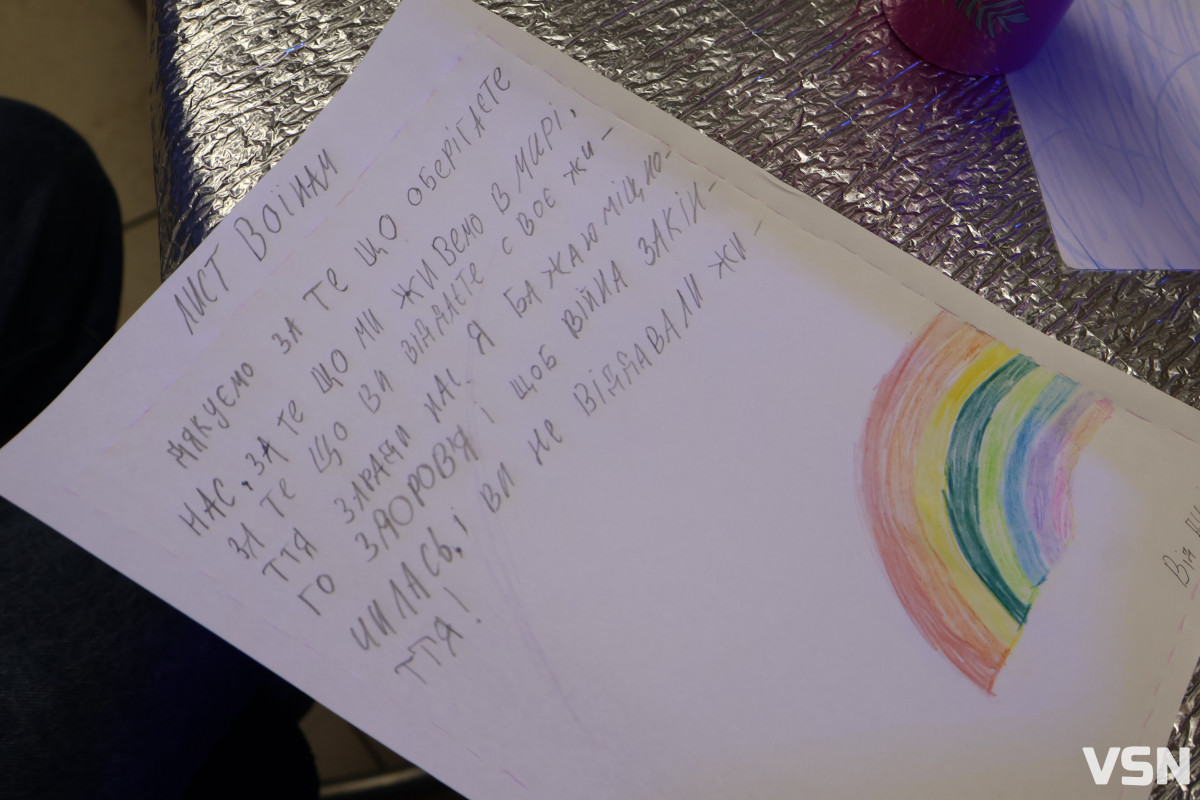 ЛИСТ ВОЇНАМ
ДЯКУЄМО ЗА ТЕ ЩО ОБЕРІГАЄТЕ
НАС, ЗА ТЕ ЩО МИ ЖИВЕМО В МИРІ,
ЗА ТЕ ЩО ВИ ВІДДАЄТЕ СВОЄ ЖИ-
ТТЯ ЗАРАДИ НАС. Я БАЖАЮ МІЦНО-
ГО ЗДОРОВЯ І ЩОБ ВІЙНА ЗАКІН-
ЧИЛАСЬ, І ВИ НЕ ВІДДАВАЛИ ЖИ-
ТТЯ!
Від
VSN